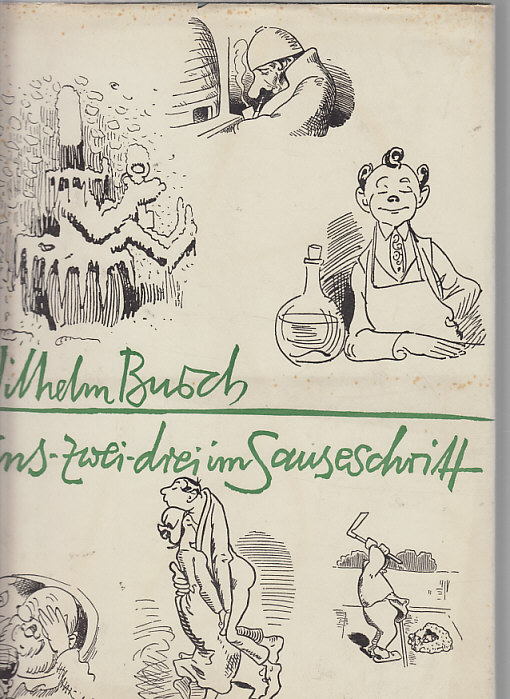 Wilhelm Busch
ins-zwei-drei im Sauseschritt